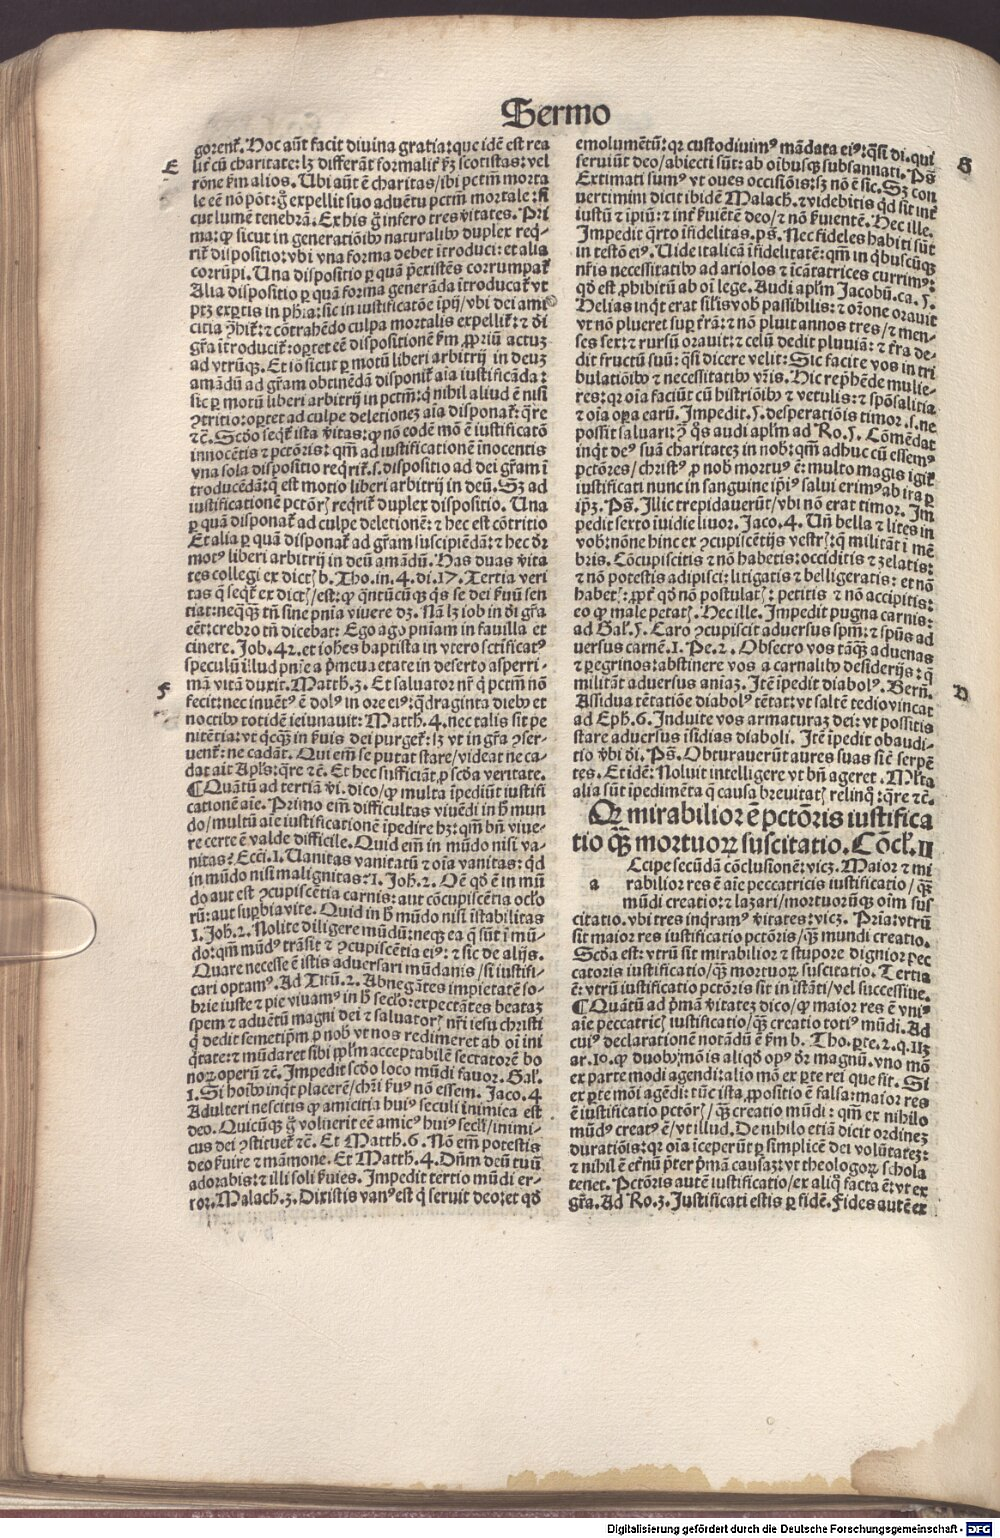 Sermo
gorent᷑. Hoc aūt facit diuina gratia: que idē est rea
E
lit᷑ cū charitate: lꝫ differāt formalit᷑ ẜm scotistas: vel
rōne ẜm alios. Ubi aūt ē charitas/ibi pctm̄ morta
le eē nō pōt: g̊ expellit suo aduētu pctm̄ mortale: si
cut lumē tenebrā. Ex his g̊ infero tres v̓itates. Pri
ma: ꝙ sicut in generatiōibꝰ naturalibꝰ duplex reqͥ-
rit᷑ dispositio: vbi vna forma debet ītroduci: et alia
corrūpi. Una dispositio ꝑ quā p̄existēs corrumpat᷑
Alia dispositio ꝑ quā forma generāda ītroducat᷑ vt
ptꝫ exꝑtis in phīa: sic in iustificatōe īpij/vbi dei ami
citia ꝓhit᷑: ⁊ cōtrahēdo culpa mortalis expellit᷑: ⁊ dī
gr̄a ītroducit᷑: oꝑtet eē dispositionē ẜm ꝓpriū actuꝫ
ad vtrūqꝫ. Et iō sicut ꝑ motū liberi arbitrij in deuꝫ
amādū ad gr̄am obtinēdā disponit᷑ aīa iustificāda:
sic ꝑ motū liberi arbitrij in pctm̄: q̄ nihil aliud ē nisi
ꝯtritio: oꝑtet ad culpe deletioneꝫ aīa disponat᷑: qͣre
⁊c̄. Scd̓o seqͥt᷑ ista v̓itas: ꝙ nō eodē mō ē iustificatō
innocētis ⁊ pctōris: qm̄ ad iustificationē inocentis
vna sola dispositio reqͥrit᷑. s. dispositio ad dei gr̄am ī
troducēdā: q̄ est motio liberi arbitrij in deū. Sꝫ ad
iustificationē pctōrꝫ reqͥrit᷑ duplex dispositio. Una
ꝑ quā disponat᷑ ad culpe deletionē: ⁊ hec est cōtritio
Et alia ꝑ quā disponat᷑ ad gr̄am suscipiēdā: ⁊ hec d̓r
motꝰ liberi arbitrij in deū amādū. Has duas v̓ita
tes collegi ex dictꝫ b. Tho. in. 4. di. 17. Tertia veri
tas q̄ seqͥt᷑ ex dictꝫ/est: ꝙ qͣntūcūqꝫ qͥs se dei ẜuū sen
tiat: neqͣqͣꝫ tn̄ sine pnīa viuere dꝫ. Nā lꝫ iob in dī gr̄a
eēt: crebro tn̄ dicebat: Ego ago pnīam in fauilla et
cinere. Job. 42. et iohēs baptista in vtero sctificatꝰ
speculū illud pnīe a p̄meua etate in deserto asperri-
F
mā vitā duxit. Matth. 3. Et saluator nr̄ q̄ pctm̄ nō
fecit: nec inuētꝰ ē dolꝰ in ore eiꝰ: qͣdraginta diebꝰ et
noctibꝰ totidē ieiunauit: Matth. 4. nec talis sit pe
nitētia: vt qͥcqͣꝫ in ẜuis dei purget᷑: lꝫ vt in gr̄a ꝯser-
uent᷑: ne cadāt. Qui em̄ se putat stare/videat ne ca-
dat ait Apl̓s: qͣre ⁊c̄. Et hec sufficiāt ꝓ scd̓a veritate.
¶Quātū ad tertiā v̓i. dico/ꝙ multa īpediūt iustifi
cationē aīe. Primo em̄ difficultas viuēdi in h̄ mun
do/multū aīe iustificationē īpedire hꝫ: qm̄ bn̄ viue-
re certe ē valde difficile. Quid em̄ in mūdo nisi va-
nitas? Ecci. 1. Uanitas vanitatū ⁊ oīa vanitas: qͥd
in mūdo nisi malignitas? 1. Joh. 2. Oē qd̓ ē in mū
do aut est ꝯcupiscētia carnis: aut cōcupiscētia oclo
rū: aut suꝑbia vite. Quid in h̄ mūdo nisi īstabilitas
1. Joh. 2. Nolite diligere mūdū: neqꝫ ea q̄ sūt ī mū-
do: qm̄ mūdꝰ trāsit ⁊ ꝯcupiscētia eiꝰ: ⁊ sic de alijs.
Quare necesse ē istis aduersari mūdanis/si iustifi-
cari optamꝰ. Ad Titū. 2. Abnegātes impietatē so-
brie iuste ⁊ pie viuamꝰ in h̄ seclo: expectātes beataꝫ
spem ⁊ aduētū magni dei ⁊ saluatorꝫ nr̄i iesu christi
q̄ dedit semetip̄m ꝓ nob̓ vt nos redimeret ab oī ini
qͥtate: ⁊ mūdaret sibi ppl̓m acceptabilē sectatorē bo
norꝝ operū ⁊c̄. Impedit scd̓o loco mūdi fauor. Gal̓.
1. Si hoībꝰ inqͥt placerē/chr̄i ẜuꝰ nō essem. Jaco. 4
Adulteri nescitis ꝙ amicitia huiꝰ seculi inimica est
deo. Quicūqꝫ g̊ voluerit eē amicꝰ huiꝰ secli/inimi-
cus dei ꝯstituet᷑ ⁊c̄. Et Matth. 6. Nō em̄ potestis
deo ẜuire ⁊ māmone. Et Matth. 4. Dn̄m deū tuū
adorabis: ⁊ illi soli ẜuies. Impedit tertio mūdi er-
ror. Malach. 3. Dixistis vanꝰ est q̄ seruit deo: et qd̓
emolumētū: qꝛ custodiuimꝰ mādata eiꝰ: qͣsi di. qui
G
seruiūt deo/abiecti sūt: ab oībusqꝫ subsannati. Ps̄
Extimati sumꝰ vt oues occisiōis: sꝫ nō ē sic. Sꝫ con
uertimini dicit ibidē Malach. ⁊ videbitis qd̓ sit int᷑
iustū ⁊ īpiū: ⁊ int᷑ ẜuiētē deo/⁊ nō ẜuientē. Hec ille.
Impedit qͣrto īfidelitas. ps̄. Nec fideles habiti sūt
in testō eiꝰ. Uide italicā īfidelitatē: qm̄ in qͥbuscūqꝫ
nr̄is necessitatibꝰ ad ariolos ⁊ īcātatrices currimꝰ:
qd̓ est ꝓhibitū ab oī lege. Audi apl̓m Jacobū. ca. 5.
Helias inqͥt erat sil̓is vob̓ passibilis: ⁊ or̄one orauit
vt nō plueret suꝑ t̓rā: ⁊ nō pluit annos tres/⁊ men-
ses sex: ⁊ rursū orauit: ⁊ celū dedit pluuiā: ⁊ t̓ra de-
dit fructū suū: qͣsi dicere velit: Sic facite vos in tri
bulatiōibꝰ ⁊ necessitatibꝰ vr̄is. Hic rep̄hēde mulie-
res: qꝛ oīa faciūt cū histriōibꝰ ⁊ vetulis: ⁊ spōsalitia
⁊ oīa oꝑa earū. Impedit. 5. desperatiōis timor. s. ne
possit saluari: ꝯ̄ qd̓s audi apl̓m ad Ro. 5. Cōmēdat
inqͥt deꝰ suā charitateꝫ in nob̓: qm̄ adhuc cū essemꝰ
pctōres/christꝰ ꝓ nob̓ mortuꝰ ē: multo magis igit᷑
iustificati nunc in sanguine ip̄iꝰ salui erimꝰ ab ira ꝑ
ip̄ꝫ. Ps̄. Illic trepidauerūt/vbi nō erat timor. Im
pedit sexto īuidie liuor. Jaco. 4. Un̄ bella ⁊ lites in
vob̓: nōne hinc ex ꝯcupiscētijs vestrꝫ: q̄ militāt ī mē
bris. Cōcupiscitis ⁊ nō habetis: occiditis ⁊ zelatis:
⁊ nō potestis adipisci: litigatis ⁊ belligeratis: et nō
habetꝫ: ꝓpt᷑ qd̓ nō postulatꝫ: petitis ⁊ nō accipitis:
eo ꝙ male petatꝫ. Hec ille. Impedit pugna carnis:
ad Gal̓. 5. Caro ꝯcupiscit aduersus spm̄: ⁊ spūs ad
uersus carnē. 1. Pe. 2. Obsecro vos tāqͣꝫ aduenas
⁊ ꝑegrinos: abstinere vos a carnalibꝰ desiderijs: q̄
D
militāt aduersus aniaꝫ. Itē īpedit diabolꝰ. Bern̄.
Assidua tētatiōe diabolꝰ tētat: vt saltē tedio vincat
ad Eph. 6. Induite vos armaturaꝫ dei: vt possitis
stare aduersus īsidias diaboli. Itē īpedit obaudi-
tio v̓bi dī. Ps̄. Obturauerūt aures suas sic̄ serpē
tes. Et idē: Noluit intelligere vt bn̄ ageret. Ml̓ta
alia sūt īpedimēta q̄ causa breuitatꝫ relinqͦ: qͣre ⁊c̄.
Qꝛ mirabilior ē pctōris iustifica
tio qͣꝫ mortuoꝝ suscitatio. Cōcl̓. II
Ccipe secūdā cōclusionē: vicꝫ. Maior ⁊ mi
a
rabilior res ē aīe peccatricis iustificatio/qͣꝫ
mūdi creatio: ⁊ lazari/mortuorūqꝫ oīm sus
citatio. vbi tres inqͥramꝰ v̓itates: vicꝫ. Prīa: vtrū
sit maior res iustificatio pctōris/qͣꝫ mundi creatio.
Scd̓a est: vtrū sit mirabilior ⁊ stupore dignior pec
catoris iustificatio/qͣꝫ mortuoꝝ suscitatio. Tertia
ē: vtrū iustificatio pctōris sit in īstāti/vel successiue.
¶Quātū ad p̄mā v̓itateꝫ dico/ꝙ maior res ē vniꝰ
aīe peccatricꝫ iustificatio/qͣꝫ creatio totiꝰ mūdi. Ad
cuiꝰ declarationē notādū ē ẜm b. Tho. ꝑte. 2. q. 113
ar. 10. ꝙ duobꝰ mōis aliqd̓ opꝰ d̓r magnū. vno mō
ex parte modi agendi: alio mō ex ꝑte rei que fit. Si
ex ꝑte mōi agēdi: tūc ista ꝓpositio ē falsa: maior res
ē iustificatio pctōrꝫ/qͣꝫ creatio mūdi: qm̄ ex nihilo
mūdꝰ creatꝰ ē/vt illud. De nihilo etiā dicit ordineꝫ
duratiōis: qꝛ oīa īceperūt ꝑ simplicē dei volūtateꝫ:
⁊ nihil ē et̓nū p̄ter p̄mā causaꝫ: vt theologoꝝ schola
tenet. Pctōris autē iustificatio/ex aliqͦ facta ē: vt ex
gr̄a. Ad Ro. 3. Justificati estis ꝑ fidē. Fides autē ex
Digitalisierung gefördert durch die Deutsche Forschungsgemeinschaft - DFG